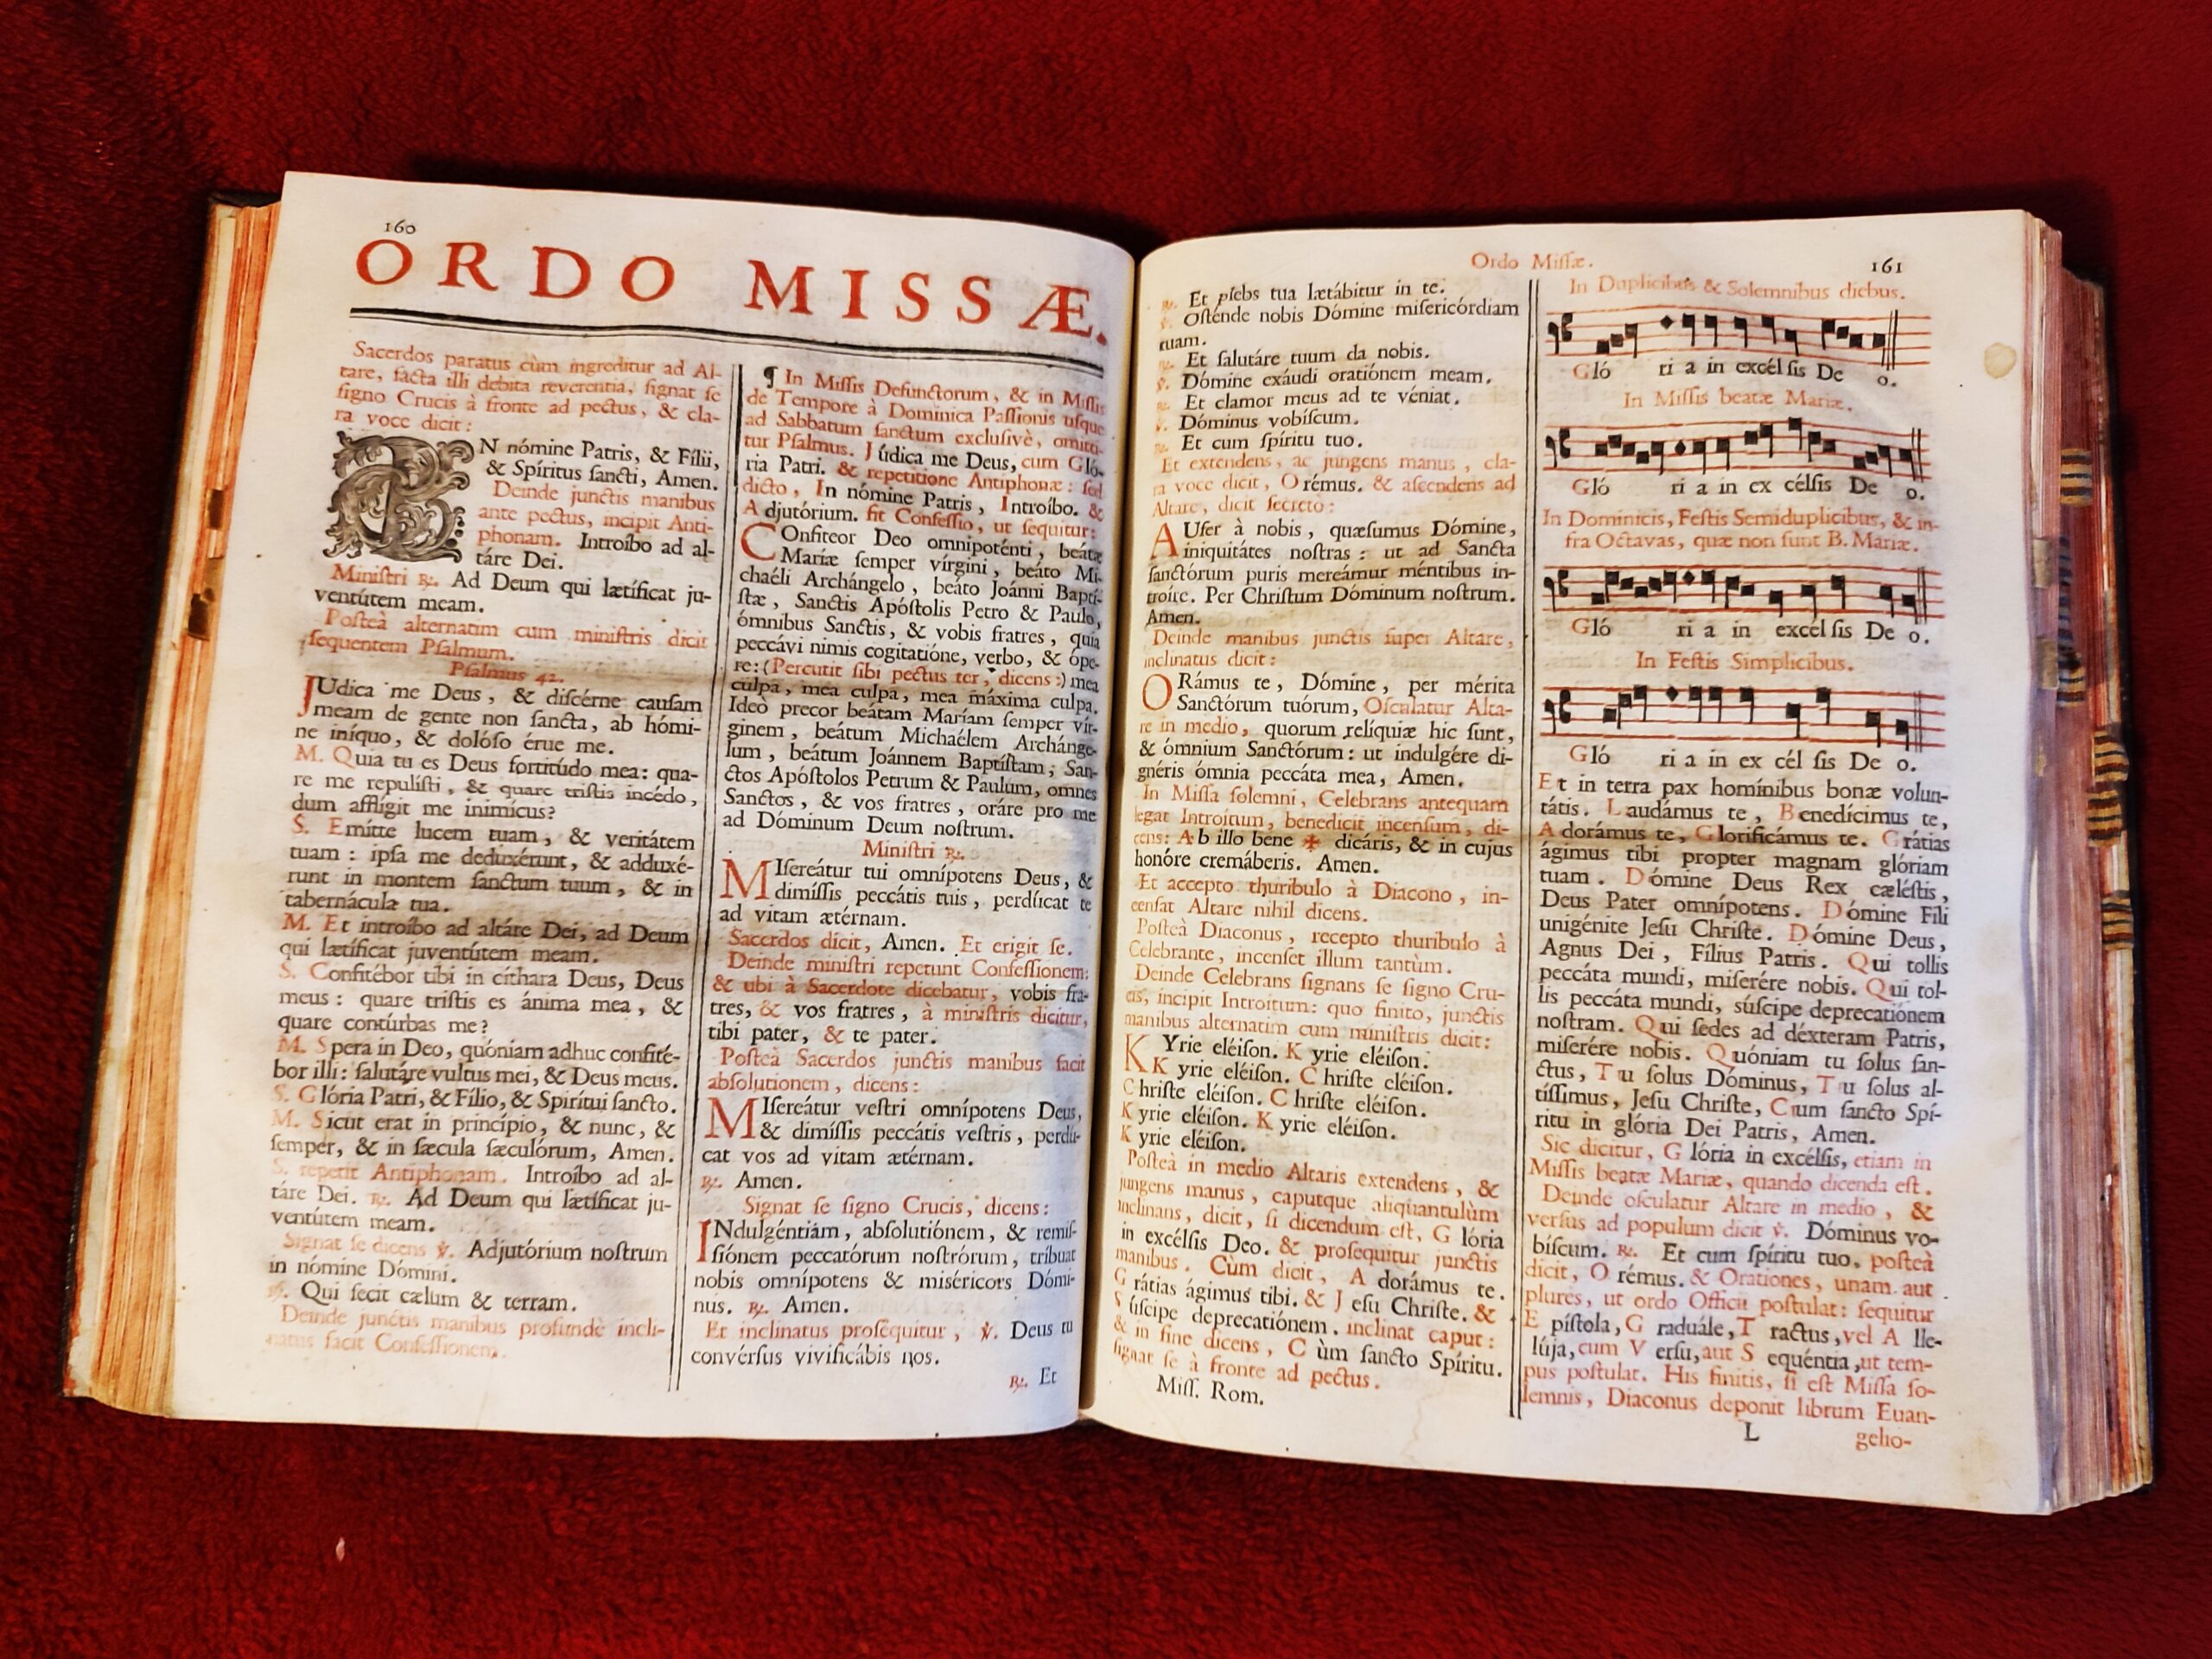 160
ORDO MISSÆ.
Sacerdos paratus cùm ingreditur ad Al-
tare, facta illi debita reverentia, ſignat ſe
ſigno Crucis à fronte ad pectus, & cla-
ra voce dicit:
IN nómine Patris, & Fílii,
& Spíritus ſancti, Amen.
Deinde junctis manibus
ante pectus, incipit Anti-
phonam. Introíbo ad al-
táre Dei.
Miniſtri ℟. Ad Deum qui lætíficat ju-
ventútem meam.
Poſteà alternatim cum miniſtris dicit
ſequentem Pſalmum.
Pſalmus 42.
JUdica me Deus, & diſcérne cauſam
meam de gente non ſancta, ab hómi-
ne iníquo, & dolóſo érue me.
M. Quia tu es Deus fortitúdo mea: qua-
re me repulíſti, & quare triſtis incédo,
dum afflígit me inimícus?
S. Emítte lucem tuam, & veritátem
tuam: ipſa me deduxérunt, & adduxé-
runt in montem ſanctum tuum, & in
tabernácula tua.
M. Et introíbo ad altáre Dei, ad Deum
qui lætíficat juventútem meam.
S. Confitébor tibi in cíthara Deus, Deus
meus: quare triſtis es ánima mea, &
quare contúrbas me?
M. Spera in Deo, quóniam adhuc confité-
bor illi: ſalutáre vultus mei, & Deus meus.
S. Glória Patri, & Fílio, & Spirítui ſancto.
M. Sicut erat in princípio, & nunc, &
ſemper, & in ſæcula ſæculórum, Amen.
S. repetit Antiphonam. Introíbo ad al-
táre Dei. ℟. Ad Deum qui lætíficat ju-
ventútem meam.
Signat ſe dicens ℣. Adjutórium noſtrum
in nómine Dómini.
℟. Qui fecit cælum & terram.
Deinde junctis manibus profundè incli-
natus facit Confeſſionem.
¶ In Miſſis Defunctorum, & in Miſſis
de Tempore à Dominica Paſſionis uſque
ad Sabbatum ſanctum excluſivè, omitti-
tur Pſalmus. Júdica me Deus, cum Gló-
ria Patri. & repetitione Antiphonæ: ſed
dicto, In nómine Patris, Introíbo. &
Adjutórium. fit Confeſſio, ut ſequitur:
COnfiteor Deo omnipoténti, beátæ
Mariæ ſemper vírgini, beáto Mi-
chaéli Archángelo, beáto Joánni Baptí-
ſtæ, Sanctis Apóſtolis Petro & Paulo,
ómnibus Sanctis, & vobis fratres, quia
peccávi nimis cogitatióne, verbo, & ópe-
re: (Percutit ſibi pectus ter, dicens:) mea
culpa, mea culpa, mea máxima culpa.
Ideò precor beátam Maríam ſemper vír-
ginem, beátum Michaélem Archánge-
lum, beátum Joánnem Baptíſtam, San-
ctos Apóſtolos Petrum & Paulum, omnes
Sanctos, & vos fratres, oráre pro me
ad Dóminum Deum noſtrum.
Miniſtri ℟.
MIſereátur tui omnípotens Deus, &
dimíſſis peccátis tuis, perdúcat te
ad vitam ætérnam.
Sacerdos dicit, Amen. Et erigit ſe.
Deinde miniſtri repetunt Confeſſionem:
& ubi à Sacerdote dicebatur, vobis fra-
tres, & vos fratres, à miniſtris dicitur,
tibi pater, & te pater.
Poſteà Sacerdos junctis manibus facit
abſolutionem, dicens:
MIſereátur veſtri omnípotens Deus,
& dimíſſis peccátis veſtris, perdú-
cat vos ad vitam ætérnam.
℟. Amen.
Signat ſe ſigno Crucis, dicens:
INdulgéntiam, abſolutiónem, & remiſ-
ſiónem peccatórum noſtrórum, tríbuat
nobis omnípotens & miſéricors Dómi-
nus. ℟. Amen.
Et inclinatus proſequitur, ℣. Deus tu
convérſus vivificábis nos.
℟. Et
Ordo Miſſæ. 161
℟. Et plebs tua lætábitur in te.
℣. Oſténde nobis Dómine miſericórdiam
tuam.
℟. Et ſalutáre tuum da nobis.
℣. Dómine exáudi oratiónem meam.
℟. Et clamor meus ad te véniat.
℣. Dóminus vobíſcum.
℟. Et cum ſpíritu tuo.
Et extendens, ac jungens manus, cla-
ra voce dicit, Orémus. & aſcendens ad
Altare, dicit ſecretò:
AUfer à nobis, quæſumus Dómine,
iniquitátes noſtras: ut ad Sancta
ſanctórum puris mereámur méntibus in-
troíre. Per Chriſtum Dóminum noſtrum.
Amen.
Deinde manibus junctis ſuper Altare,
inclinatus dicit:
ORámus te, Dómine, per mérita
Sanctórum tuórum, Oſculatur Alta-
re in medio, quorum relíquiæ hic ſunt,
& ómnium Sanctórum: ut indulgére di-
gnéris ómnia peccáta mea, Amen.
In Miſſa ſolemni, Celebrans antequam
legat Introitum, benedicit incenſum, di-
cens: Ab illo bene ✠ dicáris, & in cujus
honóre cremáberis. Amen.
Et accepto thuribulo à Diacono, in-
cenſat Altare nihil dicens.
Poſteà Diaconus, recepto thuribulo à
Celebrante, incenſet illum tantùm.
Deinde Celebrans ſignans ſe ſigno Cru-
cis, incipit Introitum: quo finito, junctis
manibus alternatim cum miniſtris dicit:
KYrie eléiſon. Kyrie eléiſon.
Kyrie eléiſon. Chriſte eléiſon.
Chriſte eléiſon. Chriſte eléiſon.
Kyrie eléiſon. Kyrie eléiſon.
Kyrie eléiſon.
Poſteà in medio Altaris extendens, &
jungens manus, caputque aliquantulùm
inclinans, dicit, ſi dicendum eſt, Glória
in excélſis Deo. & proſequitur junctis
manibus. Cùm dicit, Adorámus te.
Grátias ágimus tibi. & Jeſu Chriſte. &
Súſcipe deprecatiónem. inclinat caput:
& in fine dicens, Cùm ſancto Spíritu.
ſignat ſe à fronte ad pectus.
Miſſ. Rom.
In Duplicibus & Solemnibus diebus.
Gló ri a in excél ſis De o.
In Miſſis beatæ Mariæ.
Gló ri a in ex célſis De o.
In Dominicis, Feſtis Semiduplicibus, & in-
fra Octavas, quæ non ſunt B. Mariæ.
Gló ri a in excél ſis De o.
In Feſtis Simplicibus.
Gló ri a in ex cél ſis De o.
Et in terra pax homínibus bonæ volun-
tátis. Laudámus te, Benedícimus te,
Adorámus te, Glorificámus te. Grátias
ágimus tibi propter magnam glóriam
tuam. Dómine Deus Rex cæléſtis,
Deus Pater omnípotens. Dómine Fili
unigénite Jeſu Chriſte. Dómine Deus,
Agnus Dei, Fílius Patris. Qui tollis
peccáta mundi, miſerére nobis. Qui tol-
lis peccáta mundi, súſcipe deprecatiónem
noſtram. Qui ſedes ad déxteram Patris,
miſerére nobis. Quóniam tu ſolus ſan-
ctus, Tu ſolus Dóminus, Tu ſolus al-
tíſſimus, Jeſu Chriſte, Cum ſancto Spí-
ritu in glória Dei Patris, Amen.
Sic dicitur, Glória in excélſis, etiam in
Miſſis beatæ Mariæ, quando dicenda eſt.
Deinde oſculatur Altare in medio, &
verſus ad populum dicit ℣. Dóminus vo-
bíſcum. ℟. Et cum ſpíritu tuo. poſteà
dicit, Orémus. & Orationes, unam aut
plures, ut ordo Officii poſtulat: ſequitur
Epíſtola, Graduále, Tractus, vel Alle-
lúja, cum Verſu, aut Sequéntia, ut tem-
pus poſtulat. His finitis, ſi eſt Miſſa ſo-
lemnis, Diaconus deponit librum Euan-
L gelio-